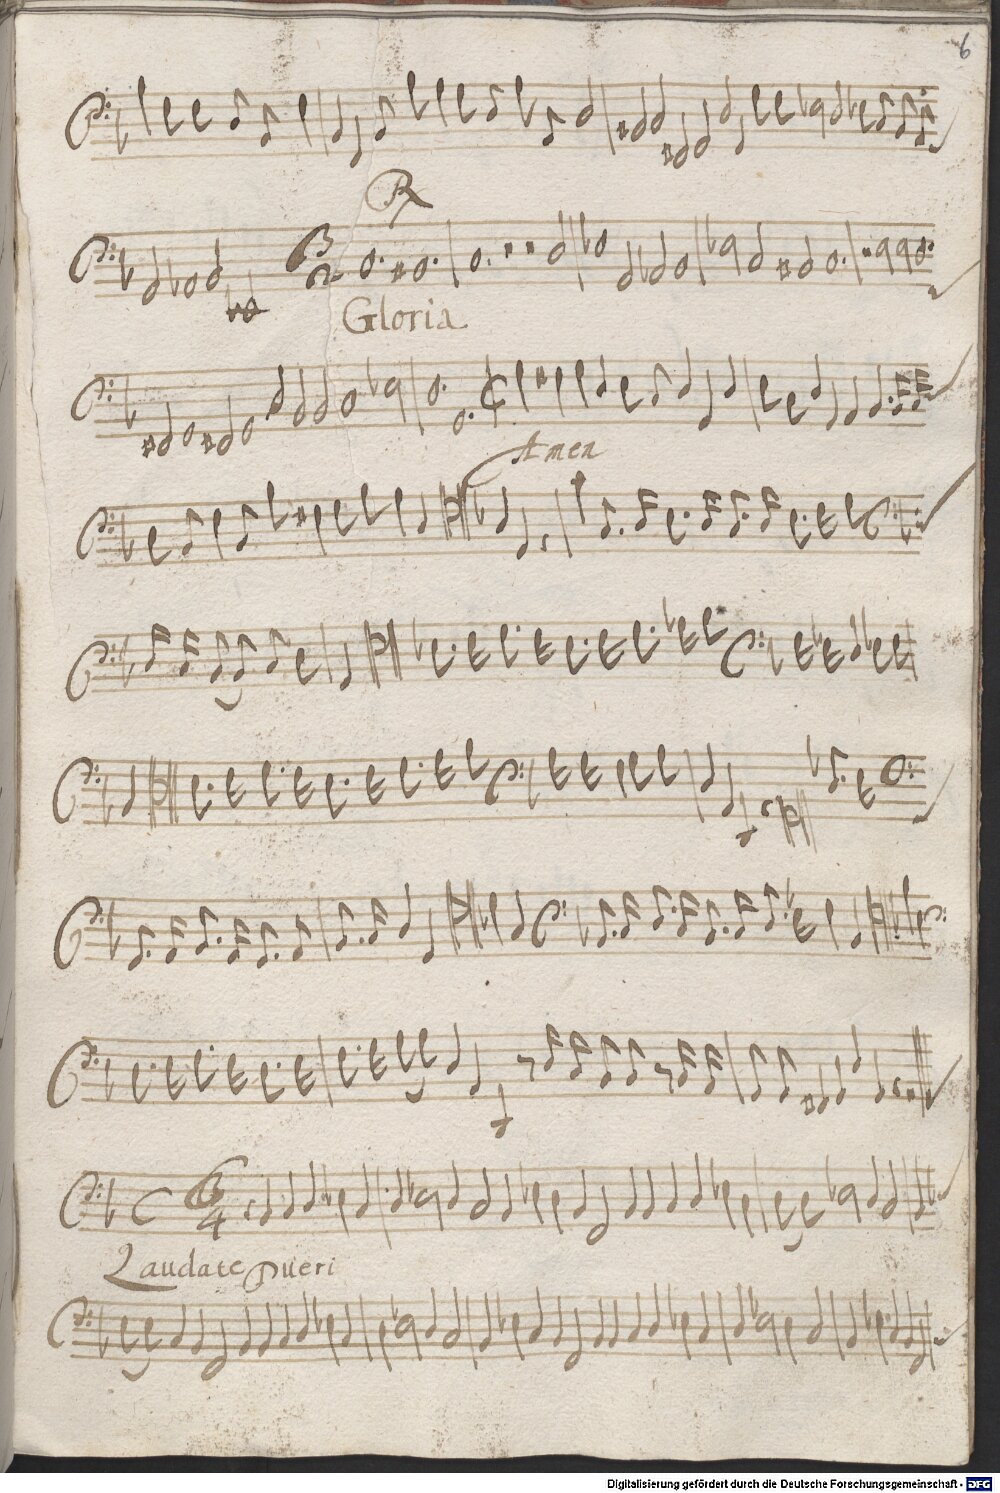 6
R
Gloria
Amen
C 6/4
Laudate Pueri
Digitalisierung gefördert durch die Deutsche Forschungsgemeinschaft - DFG